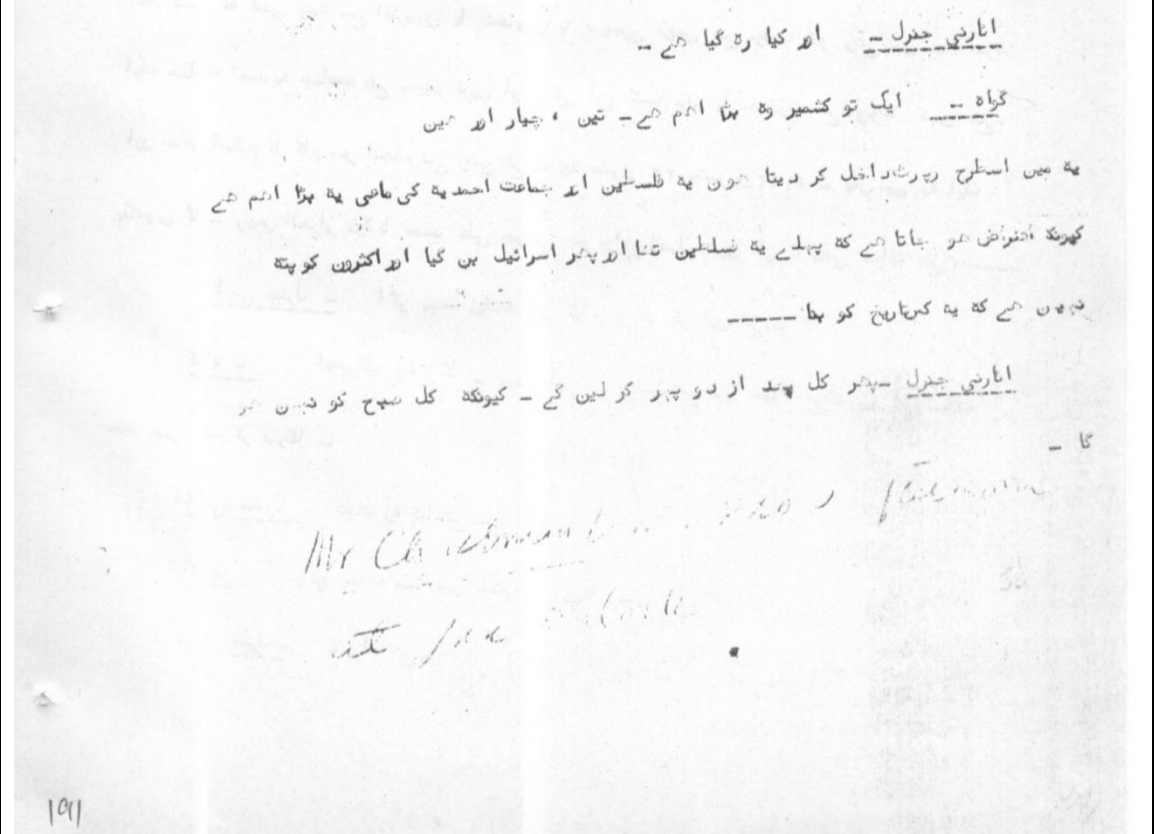 اٹارنی جنرل ـ اور کیا رہ گیا ھے ـ
گواہ ـ ایک تو کشمیر وہ بڑا اھم ھے ـ تین ، چار اور ھین
یہ مین اسطرح رپورٹ داخل کر دیتا ھون یہ فلسطین اور جماعت احمدیہ کی ماضی یہ بڑا اھم ھے
کیونکہ اعتراض ھو جاتا ھے کہ پہلے یہ فسلطین تھا اور پھر اسرائیل بن گیا اور اکثرون کو پتہ
نہین ھے کہ یہ کس تاریخ کو بنا -----
اٹارنی جنرل ـ پھر کل بعد از دو پہر کر لین گے ـ کیونکہ کل صبح کو نہین ھو
گا ـ
Mr Chairman
191